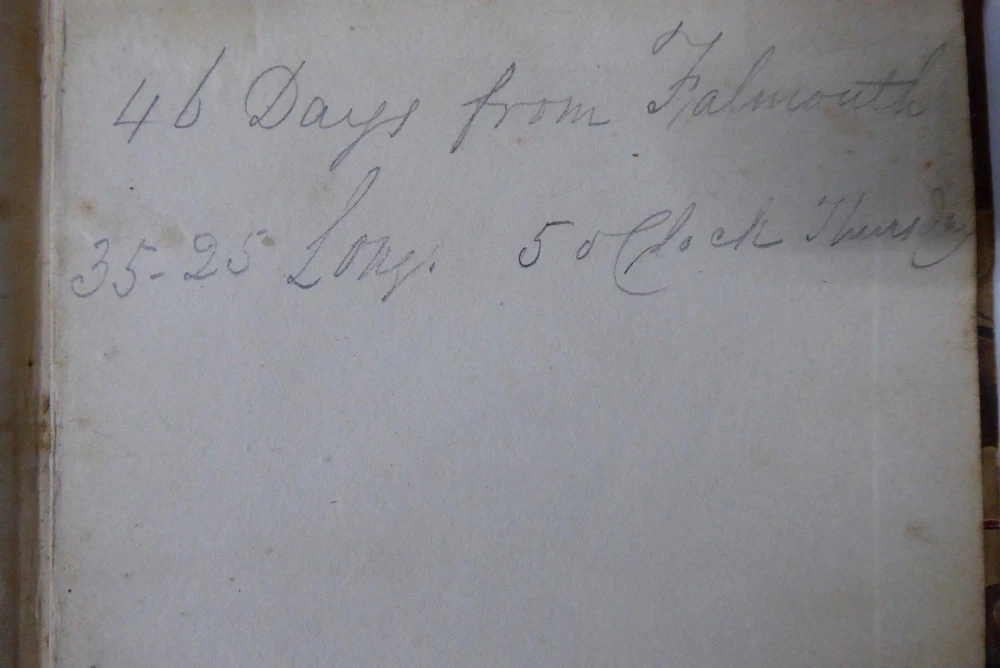 46 Days from Falmouth
35-25 Long. 5 o Clock Thursday